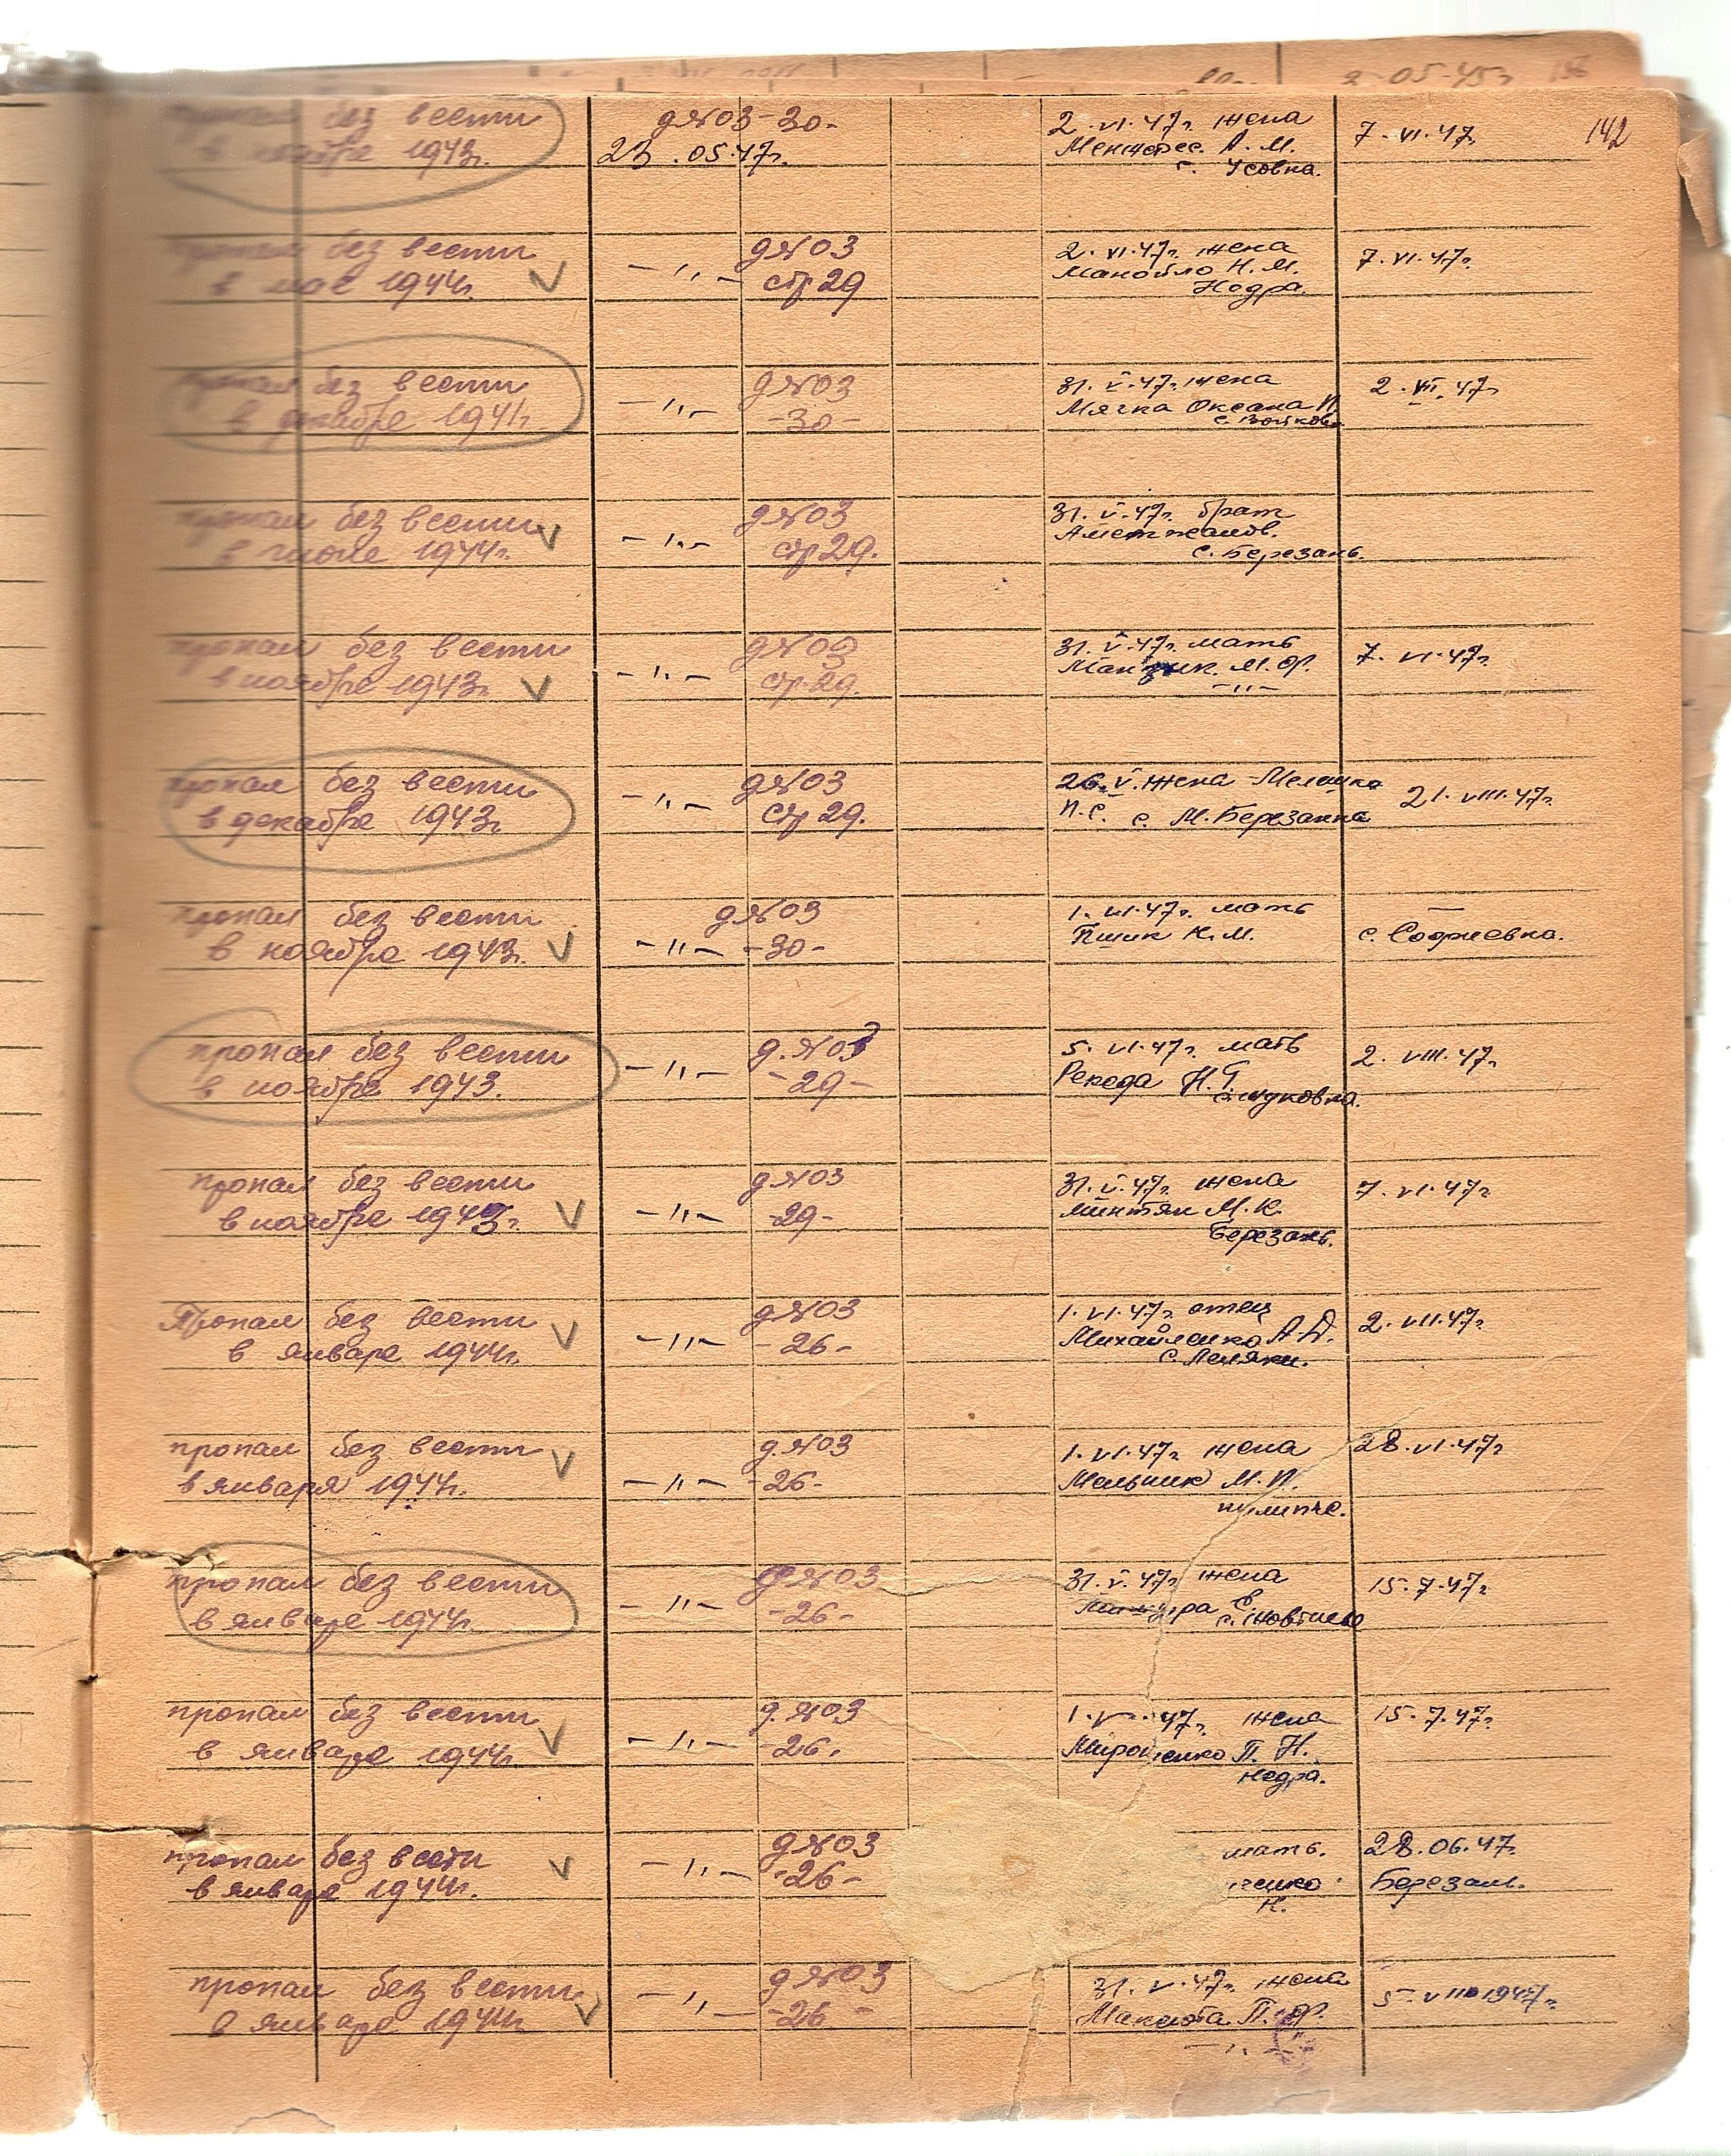 142
без вести
1943г.
д№03-30-
23.05.47г.
2.VI.47г. жена
А. М.
с. Усовка.
7.VI.47г.
без вести
в мае 1944г.
-"-
д№03
стр 29
2.VI.47г. жена
Манойло Н. М.
Недра.
7.VI.47г.
пропал без вести
в декабре 1941г.
-"-
д№03
-30-
31.V.47г. жена
Мячка Оксана П.
2.VII.47г.
пропал без вести
в июне 1944г.
-"-
д№03
стр 29.
31.V.47г. брат
с. Березань.
пропал без вести
в ноябре 1943г.
-"-
д№03
стр. 29.
31.V.47г. мать
М. Ф.
-"-
7.VI.47г.
пропал без вести
в декабре 1943г.
-"-
д№03
Стр 29.
26.V. жена Мелашка
П.С. с. М. Березанка
21.VIII.47г.
пропал без вести
в ноябре 1943г.
-"-
д№03
-30-
1.VI.47г. мать
Пшик К.М.
с. Софиевка.
пропал без вести
в ноябре 1943.
-"-
д.№03
-29-
5.VI.47г. мать
Рекеда Н.Т.
2.VIII.47г.
пропал без вести
в ноябре 1943г.
-"-
д№03
-29-
31.V.47г. жена
Минтян М.К.
Березань.
7.VI.47г.
Пропал без вести
в январе 1944г.
-"-
д№03
-26-
1.VI.47г. отец
Михайленко А.Д.
с. Леляки.
2.VII.47г.
пропал без вести
в января 1944г.
-"-
д.№03
-26-
1.VI.47г. жена
Мельник М.П.
28.VI.47г
пропал без вести
в январе 1944г.
-"-
д№03
-26-
31.V.47г. жена
15.7.47г
пропал без вести
в январе 1944г.
-"-
д.№03
-26.
47г. жена
Мироненко П. Н.
Недра.
15.7.47г.
пропал без вести
в январе 1944г.
-"-
д№03
-26-
мать.
енко
К.
28.06.47.
Березань.
пропал без вести
в январе 1944г.
-"-
д№03
-26-
31.V.47г. жена
Максюта П. Ф.
-"-
5.VIII 1947г.